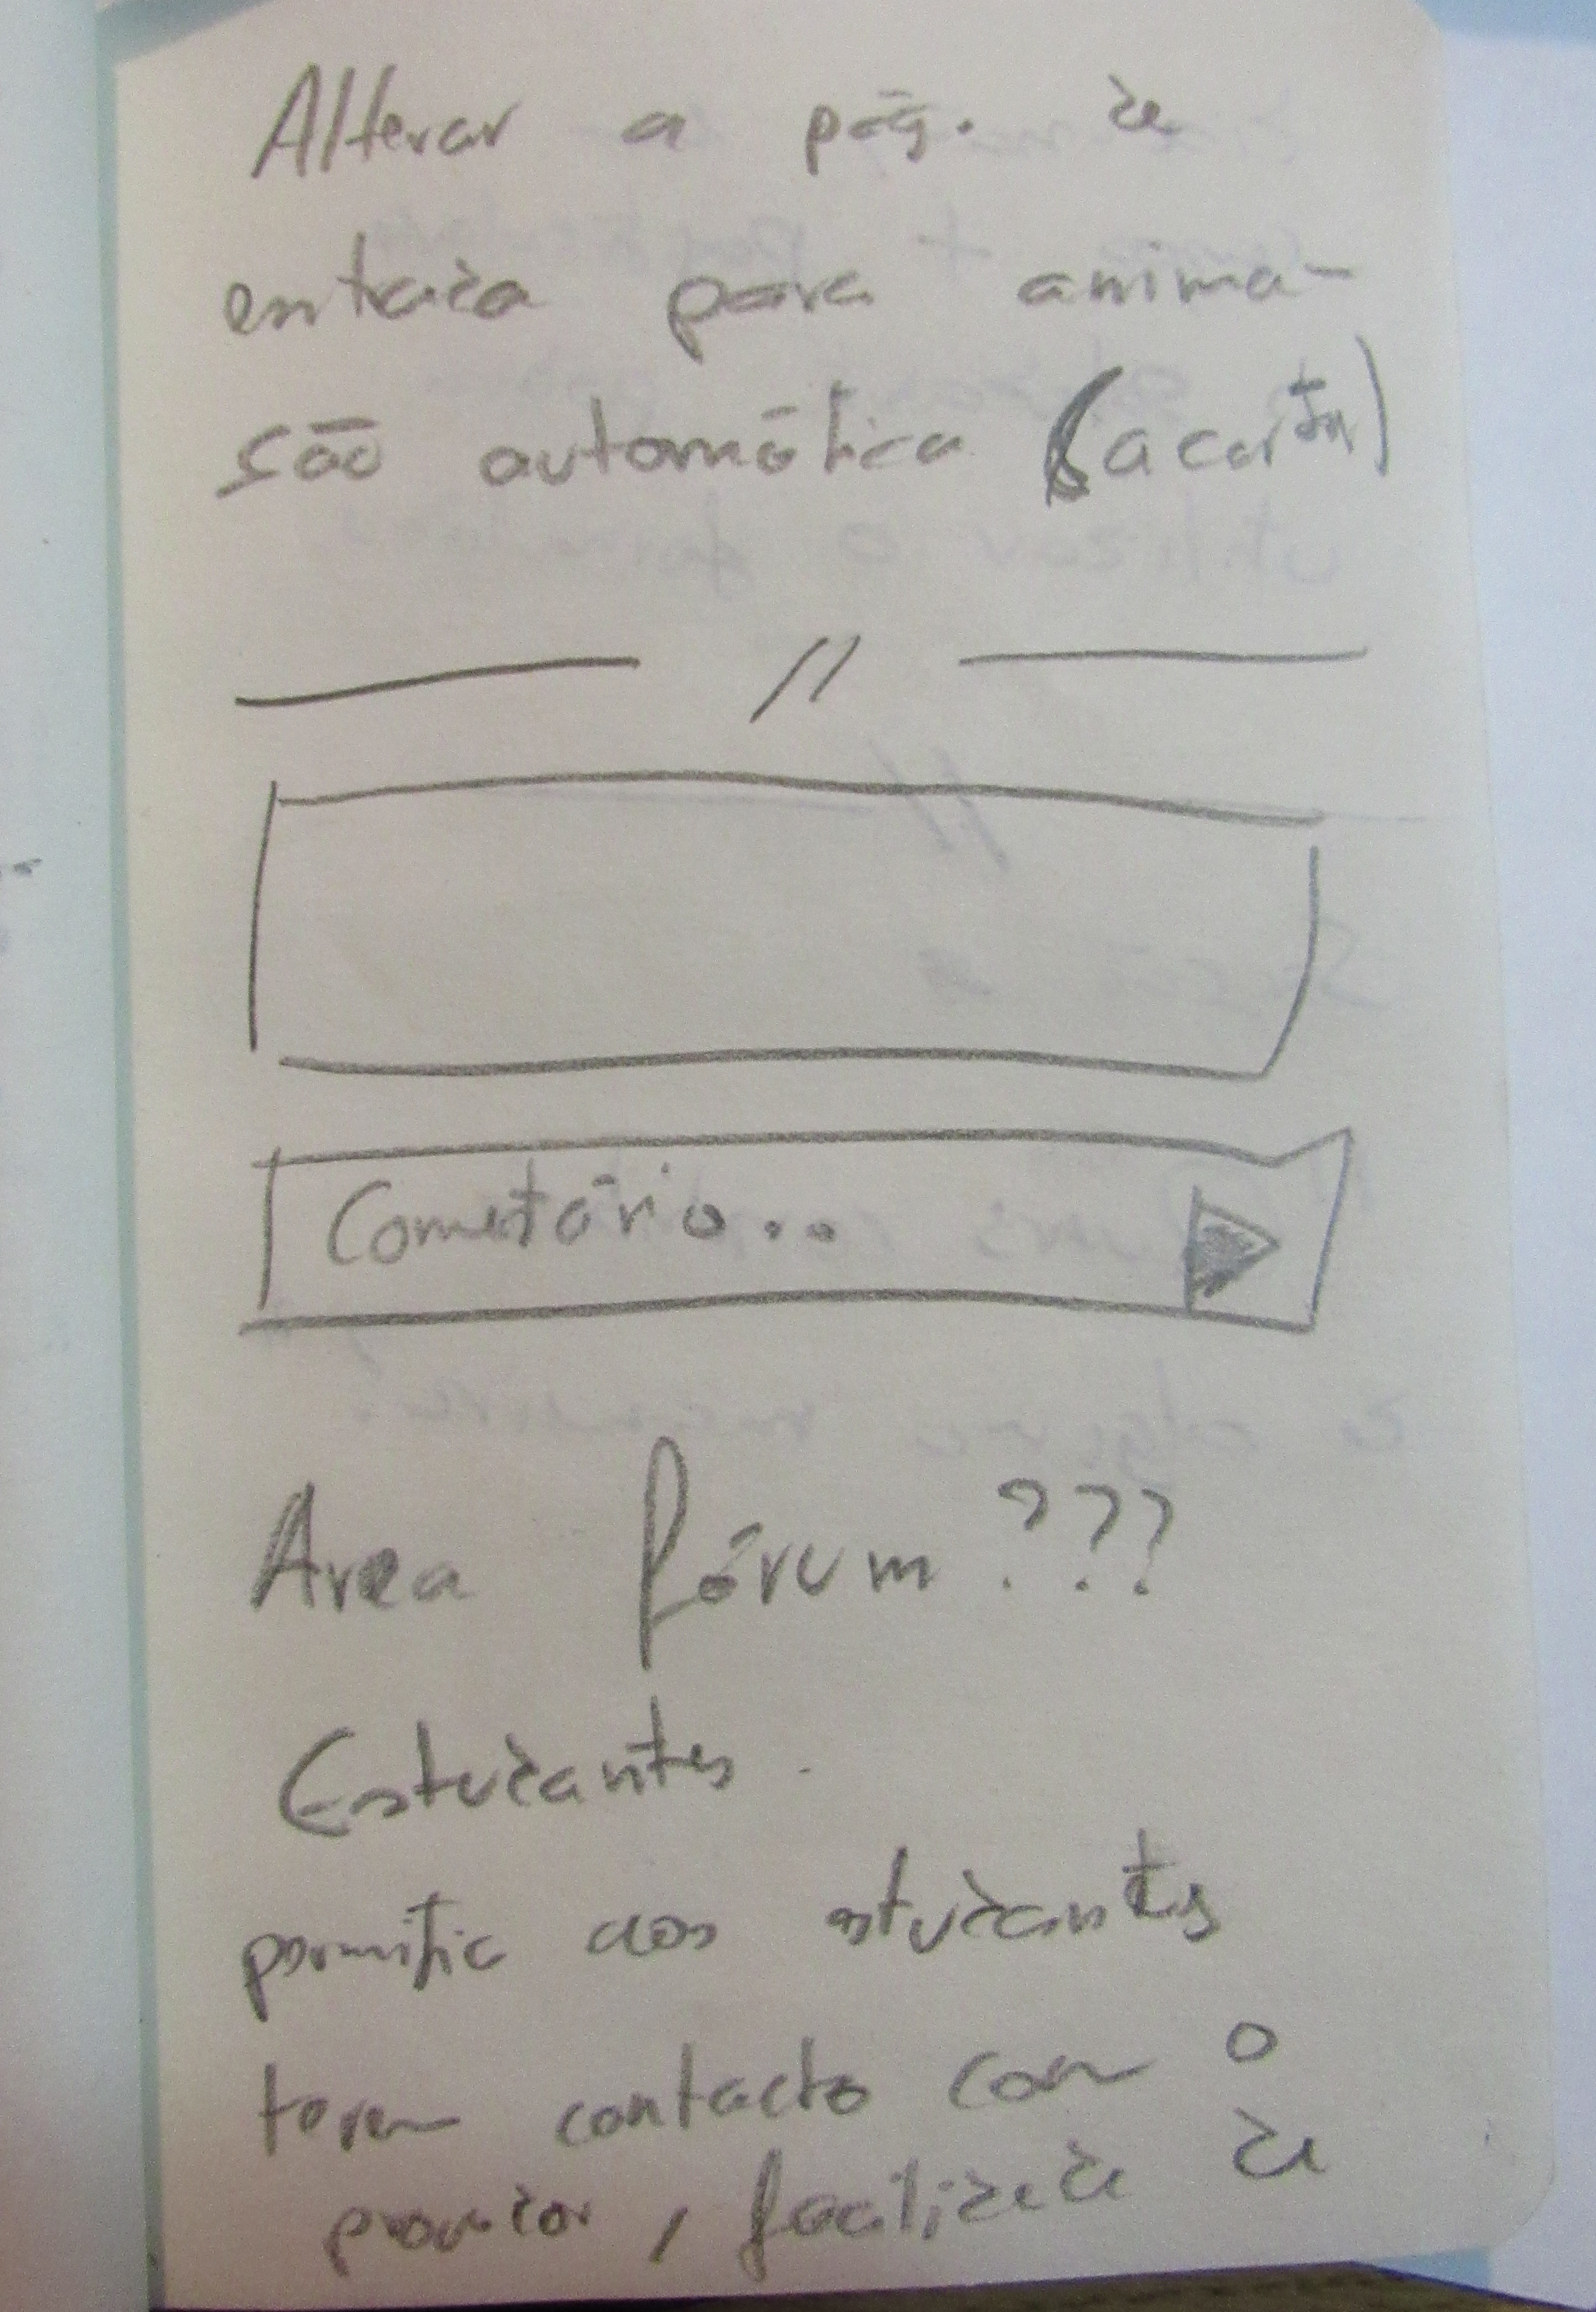 Alterar a pág. de
entrada para anima-
ção automática (acertar)
//
Cometário...
Area fórum ???
Estudantes.
permitir aos estudantes
terem contacto com o
facilidade de